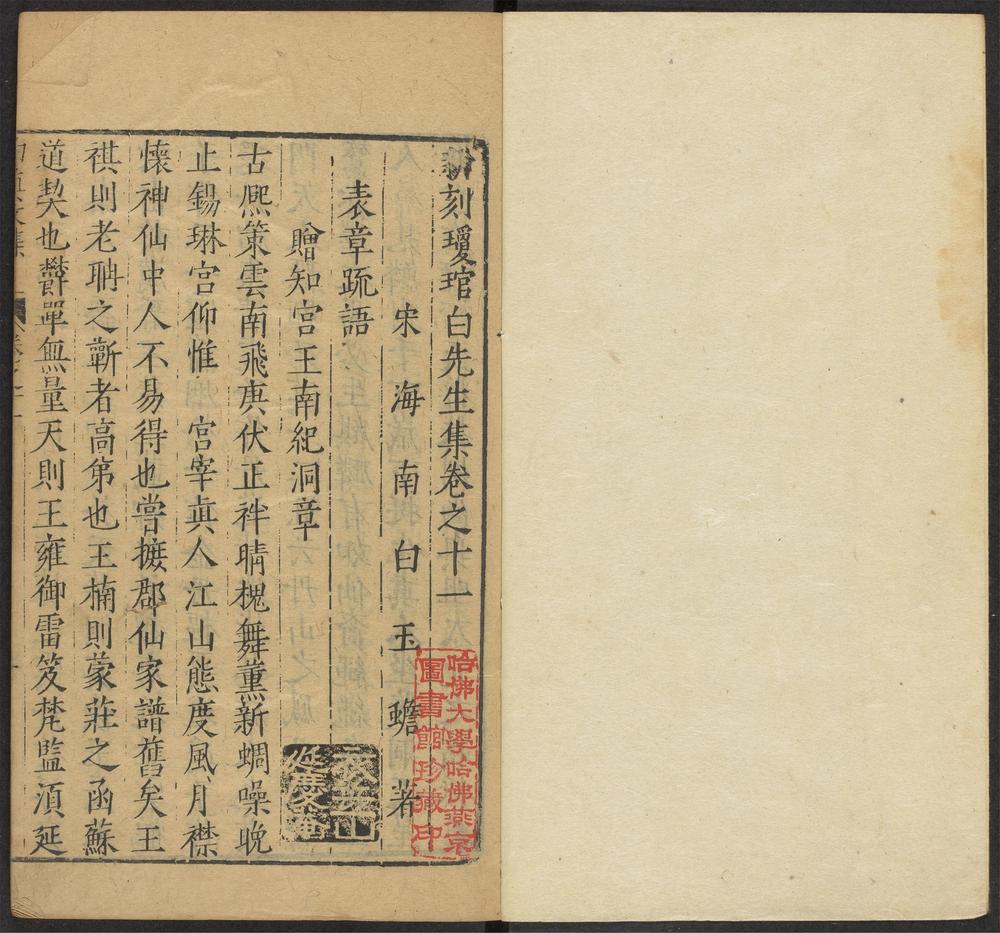 新刻瓊琯白先生集卷之十一
宋海南白玉蟾著
表章疏語
贈知宮王南紀洞章
古熈策雲南飛庚伏正袢晴槐舞薰新蜩噪晚
止錫琳宮仰惟 宮宰眞人江山態度風月襟
懐神仙中人不易得也嘗摭郡仙家譜舊矣王
祺則老聃之蘄者高第也王楠則蒙莊之函蘇
道契也欝單無量天則王雍御雷笈梵監湏延
哈佛大學哈佛燕京
圖書館珍藏印